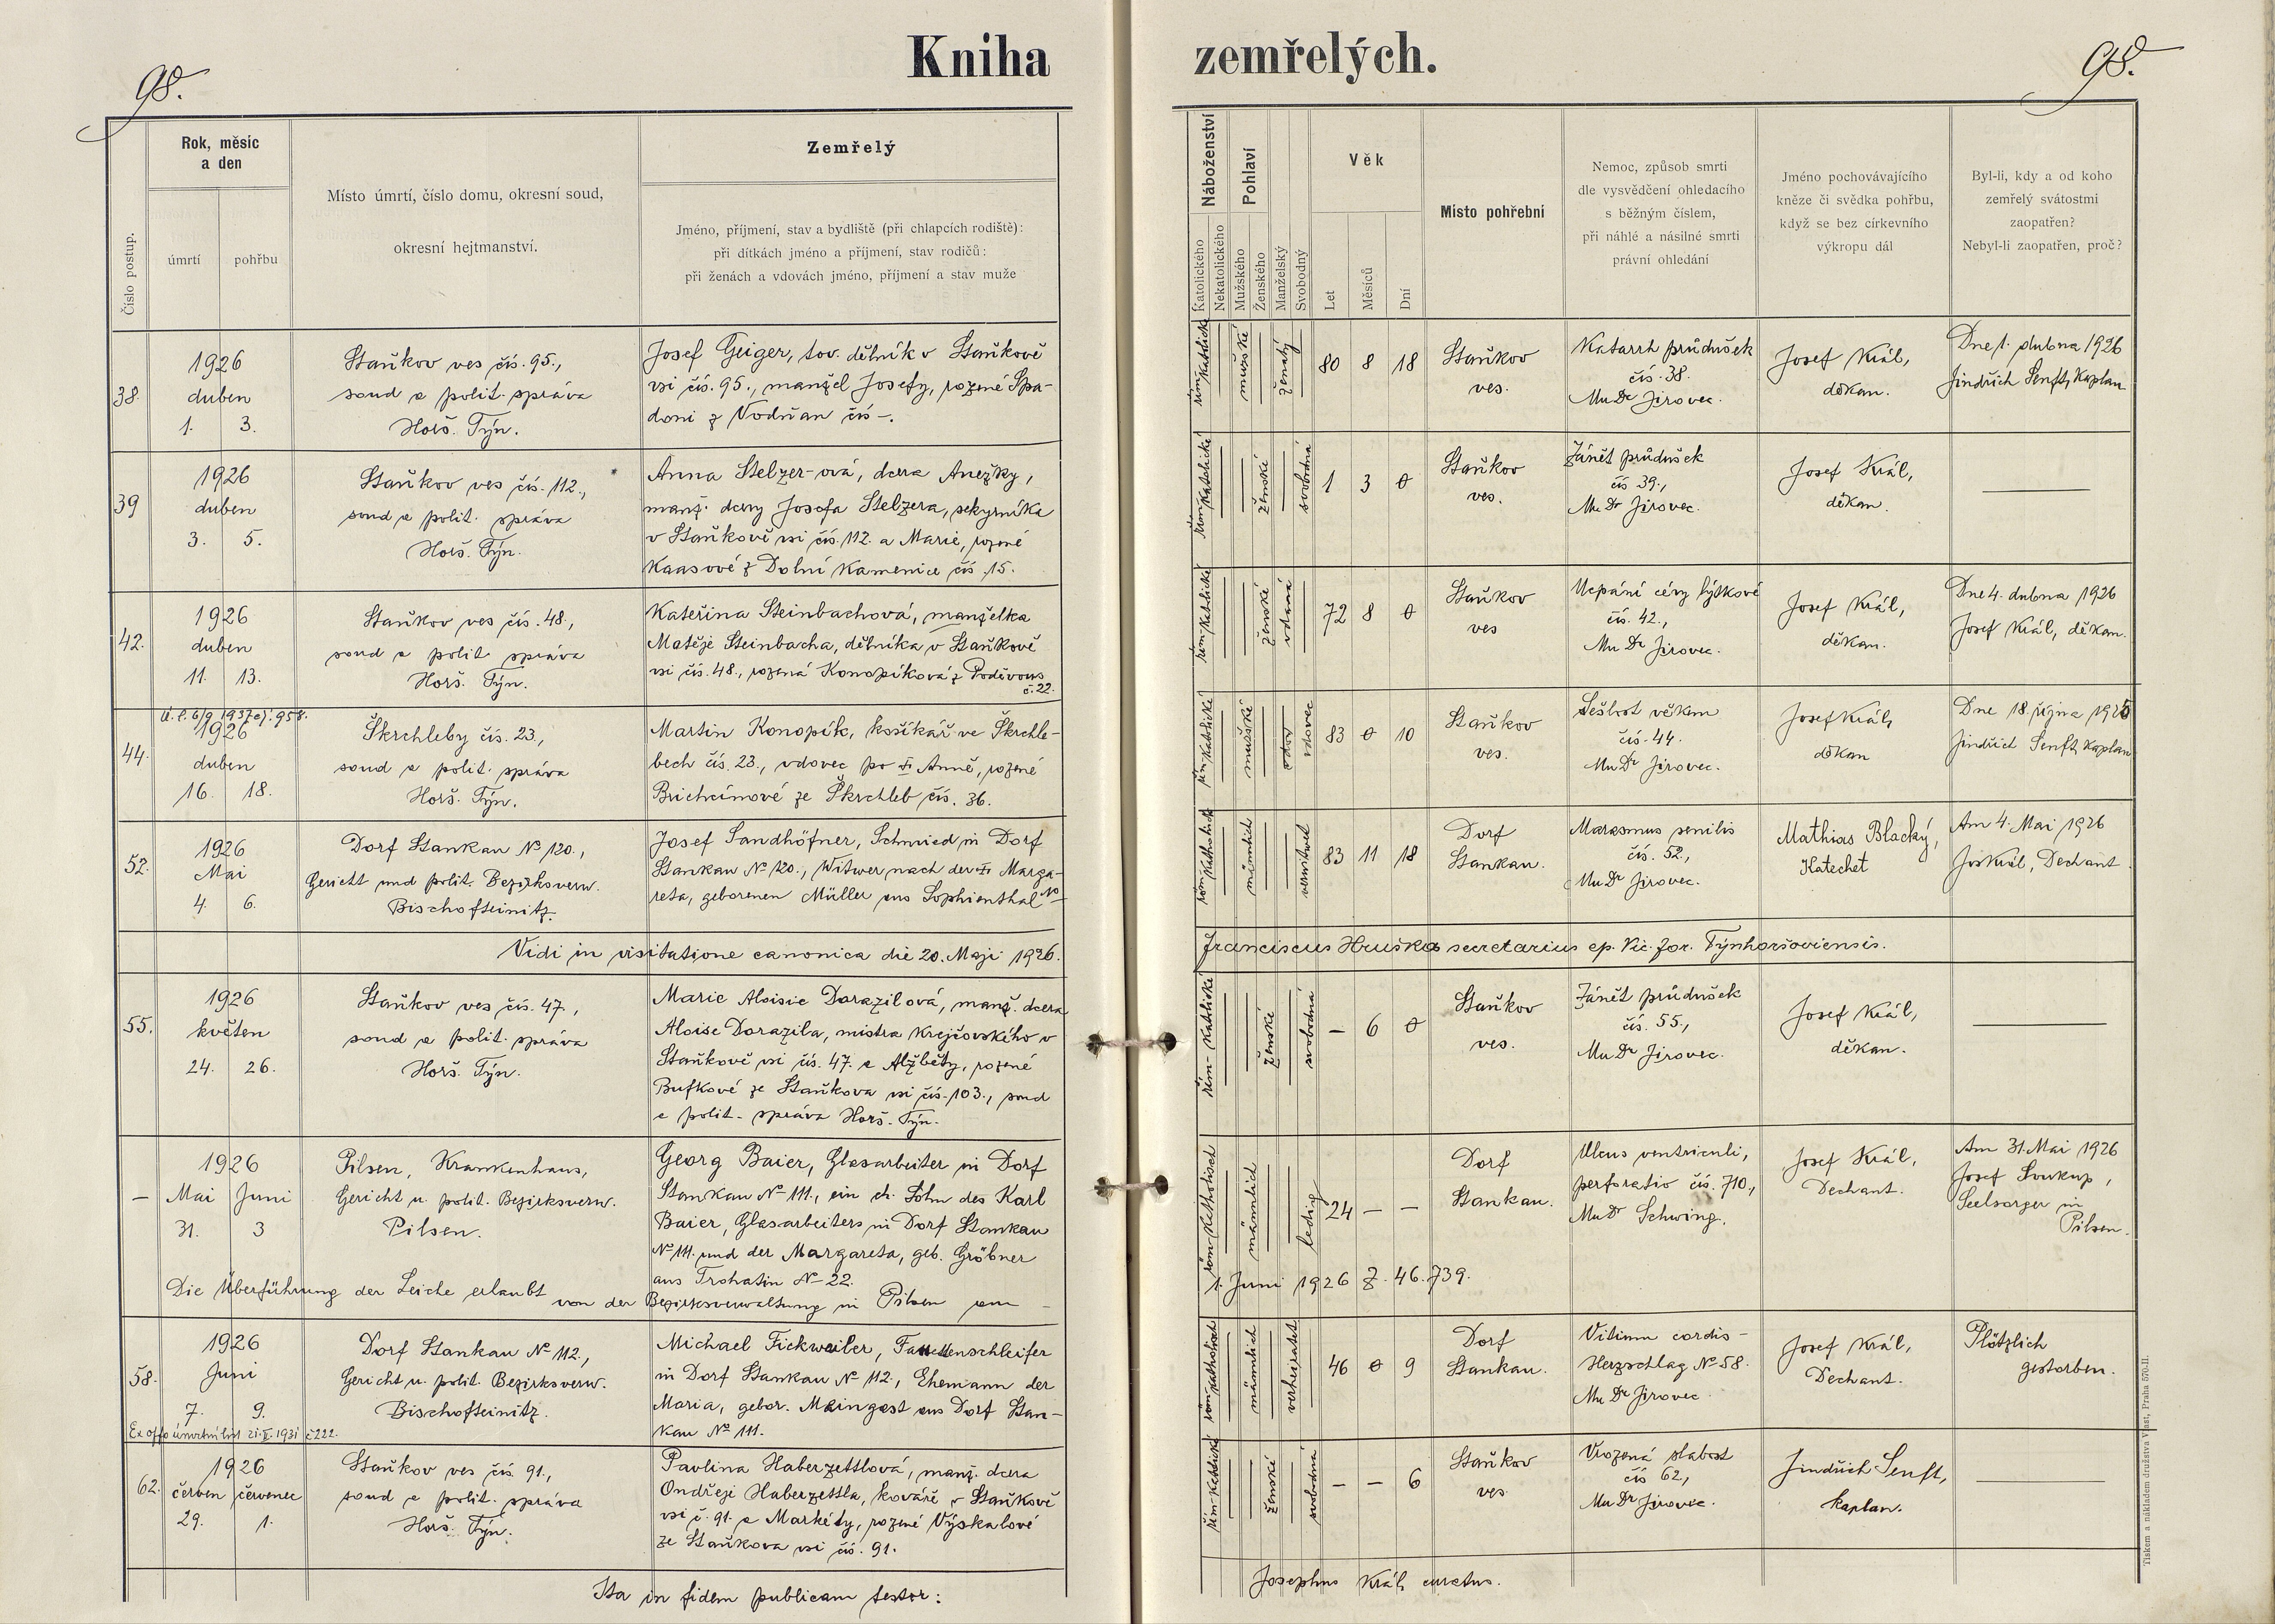 98.
Kniha zemřelých.
98.
Číslo postup.
Rok, měsíc
a den
úmrtí
pohřbu
Místo úmrtí, číslo domu, okresní soud,
okresní hejtmanství.
Zemřelý
Jméno, příjmení, stav a bydliště (při chlapcích rodiště):
při dítkách jméno a příjmení, stav rodičů:
při ženách a vdovách jméno, příjmení a stav muže
Náboženství
Katolického
Nekatolického
Pohlaví
Mužského
Ženského
Manželský
Svobodný
Věk
Let
Měsíců
Dní
Místo pohřební
Nemoc, způsob smrti
dle vysvědčení ohledacího
s běžným číslem,
při náhlé a násilné smrti
právní ohledání
Jméno pochovávajícího
kněze či svědka pohřbu,
když se bez církevního
výkropu dál
Byl-li, kdy a od koho
zemřelý svátostmi
zaopatřen?
Nebyl-li zaopatřen, proč?
38.
1926
duben
1. 3.
Staňkov ves čís. 95.,
soud a polit. správa
Horš. Týn.
Josef Geiger, tov. dělník v Staňkově
vsi čís. 95., manžel Josefy, rozené Spa-
doni z Vodňan čís –.
řím-katolické
mužské
ženatý
80 8 18
Staňkov
ves.
Katarrh průdušek
čís. 38.
MuDr Jirovec.
Josef Král,
děkan.
Dne 1. dubna 1926
Jindřich Senft, Kaplan
39
1926
duben
3. 5.
Staňkov ves čís. 112.,
soud a polit. správa
Horš. Týn.
Anna Stelzer-ová, dcera Anežky,
manž. dcery Josefa Stelzera, sekyrníka
v Staňkově vsi čís. 112. a Marie, rozené
Kaasové z Dolní Kamenice čís. 15.
řím-katolické
ženské
svobodná
1 3 0
Staňkov
ves.
Zánět průdušek
čís 39.,
MuDr Jirovec.
Josef Král,
děkan.
42.
1926
duben
11. 13.
Staňkov ves čís. 48.,
soud a polit. správa
Horš. Týn.
Kateřina Steinbachová, manželka
Matěje Steinbacha, dělníka v Staňkově
vsi čís. 48., rozená Konopíková z Poděvous
č. 22.
řím-katolické
ženské
vdaná
72 8 0
Staňkov
ves
Ucpání cévy lýtkové
čís. 42.,
MuDr Jirovec.
Josef Král,
děkan.
Dne 4. dubna 1926
Josef Král, děkan.
Ú. l. 6/9 1937 čj. 958.
44.
1926
duben
16. 18.
Škrchleby čís. 23.,
soud a polit. správa
Horš. Týn.
Martin Konopík, košíkář ve Škrchle-
bech čís. 23., vdovec po II. Anně, rozené
Brichcínové ze Škrchleb čís. 36.
řím-katolické
mužské
vdov
vdovec
83 0 10
Staňkov
ves.
Sešlost věkem
čís. 44.
MuDr Jirovec.
Josef Král,
děkan
Dne 18. října 1925
Jindřich Senft, kaplan
52.
1926
Mai
4. 6.
Dorf Stankau No 120.,
Gericht und polit. Bezirksverw.
Bischofteinitz.
Josef Sandhöfner, Schmied in Dorf
Stankau No 120., Witwer nach der II. Marga-
reta, geborenen Müller aus Sophienthal No –
röm-katholisch
männlich
verwitwet
83 11 18
Dorf
Stankau.
Marasmus senilis
čís. 52.,
MuDr Jirovec.
Mathias Blacký,
Katechet
Am 4. Mai 1926
Jos Král, Dechant.
Vidi in visitatione canonica die 20. Maji 1926.
Franciscus Hruška secretarius ep. Vic. for. Týnhoršoviensis.
55.
1926
květen
24. 26.
Staňkov ves čís. 47,
soud a polit. správa
Horš. Týn.
Marie Aloisie Dorazilová, manž. dcera
Aloise Dorazila, mistra Krejčovského v
Staňkově vsi čís. 47. a Alžběty, rozené
Bufkové ze Staňkova vsi čís. 103., soud
a polit. správa Horš. Týn.
řím-katolické
ženské
svobodná
– 6 0
Staňkov
ves.
Zánět průdušek
čís. 55.,
MuDr Jirovec.
Josef Král,
děkan.
–
1926
Mai Juni
31. 3
Pilsen, Krankenhaus,
Gericht u. polit. Bezirksverw.
Pilsen.
Georg Baier, Glasarbeiter in Dorf
Stankau No 111., ein eh. Sohn des Karl
Baier, Glasarbeiters in Dorf Stankau
No 111. und der Margareta, geb. Gröbner
aus Trohatin No 22.
röm-katholisch
männlich
ledig
24 – –
Dorf
Stankau.
Ulcus ventriculi,
perforatio čís. 710.,
MuDr Schwing.
Josef Král,
Dechant.
Am 31. Mai 1926
Josef Soukup,
Seelsorger in
Pilsen.
Die Überführung der Leiche erlaubt von der Bezirksverwaltung in Pilsen am –
1. Juni 1926 Z. 46.739.
58.
1926
Juni
7. 9.
Dorf Stankau No 112.,
Gericht u. polit. Bezirksverw.
Bischofteinitz.
Michael Fickweiler, Facettenschleifer
in Dorf Stankau No 112., Ehemann der
Maria, gebor. Maingast aus Dorf Stan-
kau No 111.
röm-katholisch
männlich
verheiratet
46 0 9
Dorf
Stankau.
Vitium cordis –
Herzschlag No 58.
MuDr Jirovec
Josef Král,
Dechant.
Plötzlich
gestorben.
Ex offo úmrtní list 21. II. 1931 č 222.
62.
1926
červen červenec
29. 1.
Staňkov ves čís. 91.,
soud a polit. správa
Horš. Týn.
Pavlina Haberzettlová, manž. dcera
Ondřeje Haberzettla, kováře v Staňkově
vsi č. 91. a Markéty, rozené Výskalové
ze Staňkova vsi čís. 91.
řím-katolické
ženské
svobodná
– – 6
Staňkov
ves.
Vrozená slabost
čís 62,
MuDr Jirovec.
Jindřich Senft,
kaplan.
Ita in fidem publicam testor:
Josephus Král, curatus.
Tiskem a nákladem družstva Vlast, Praha 570-II.